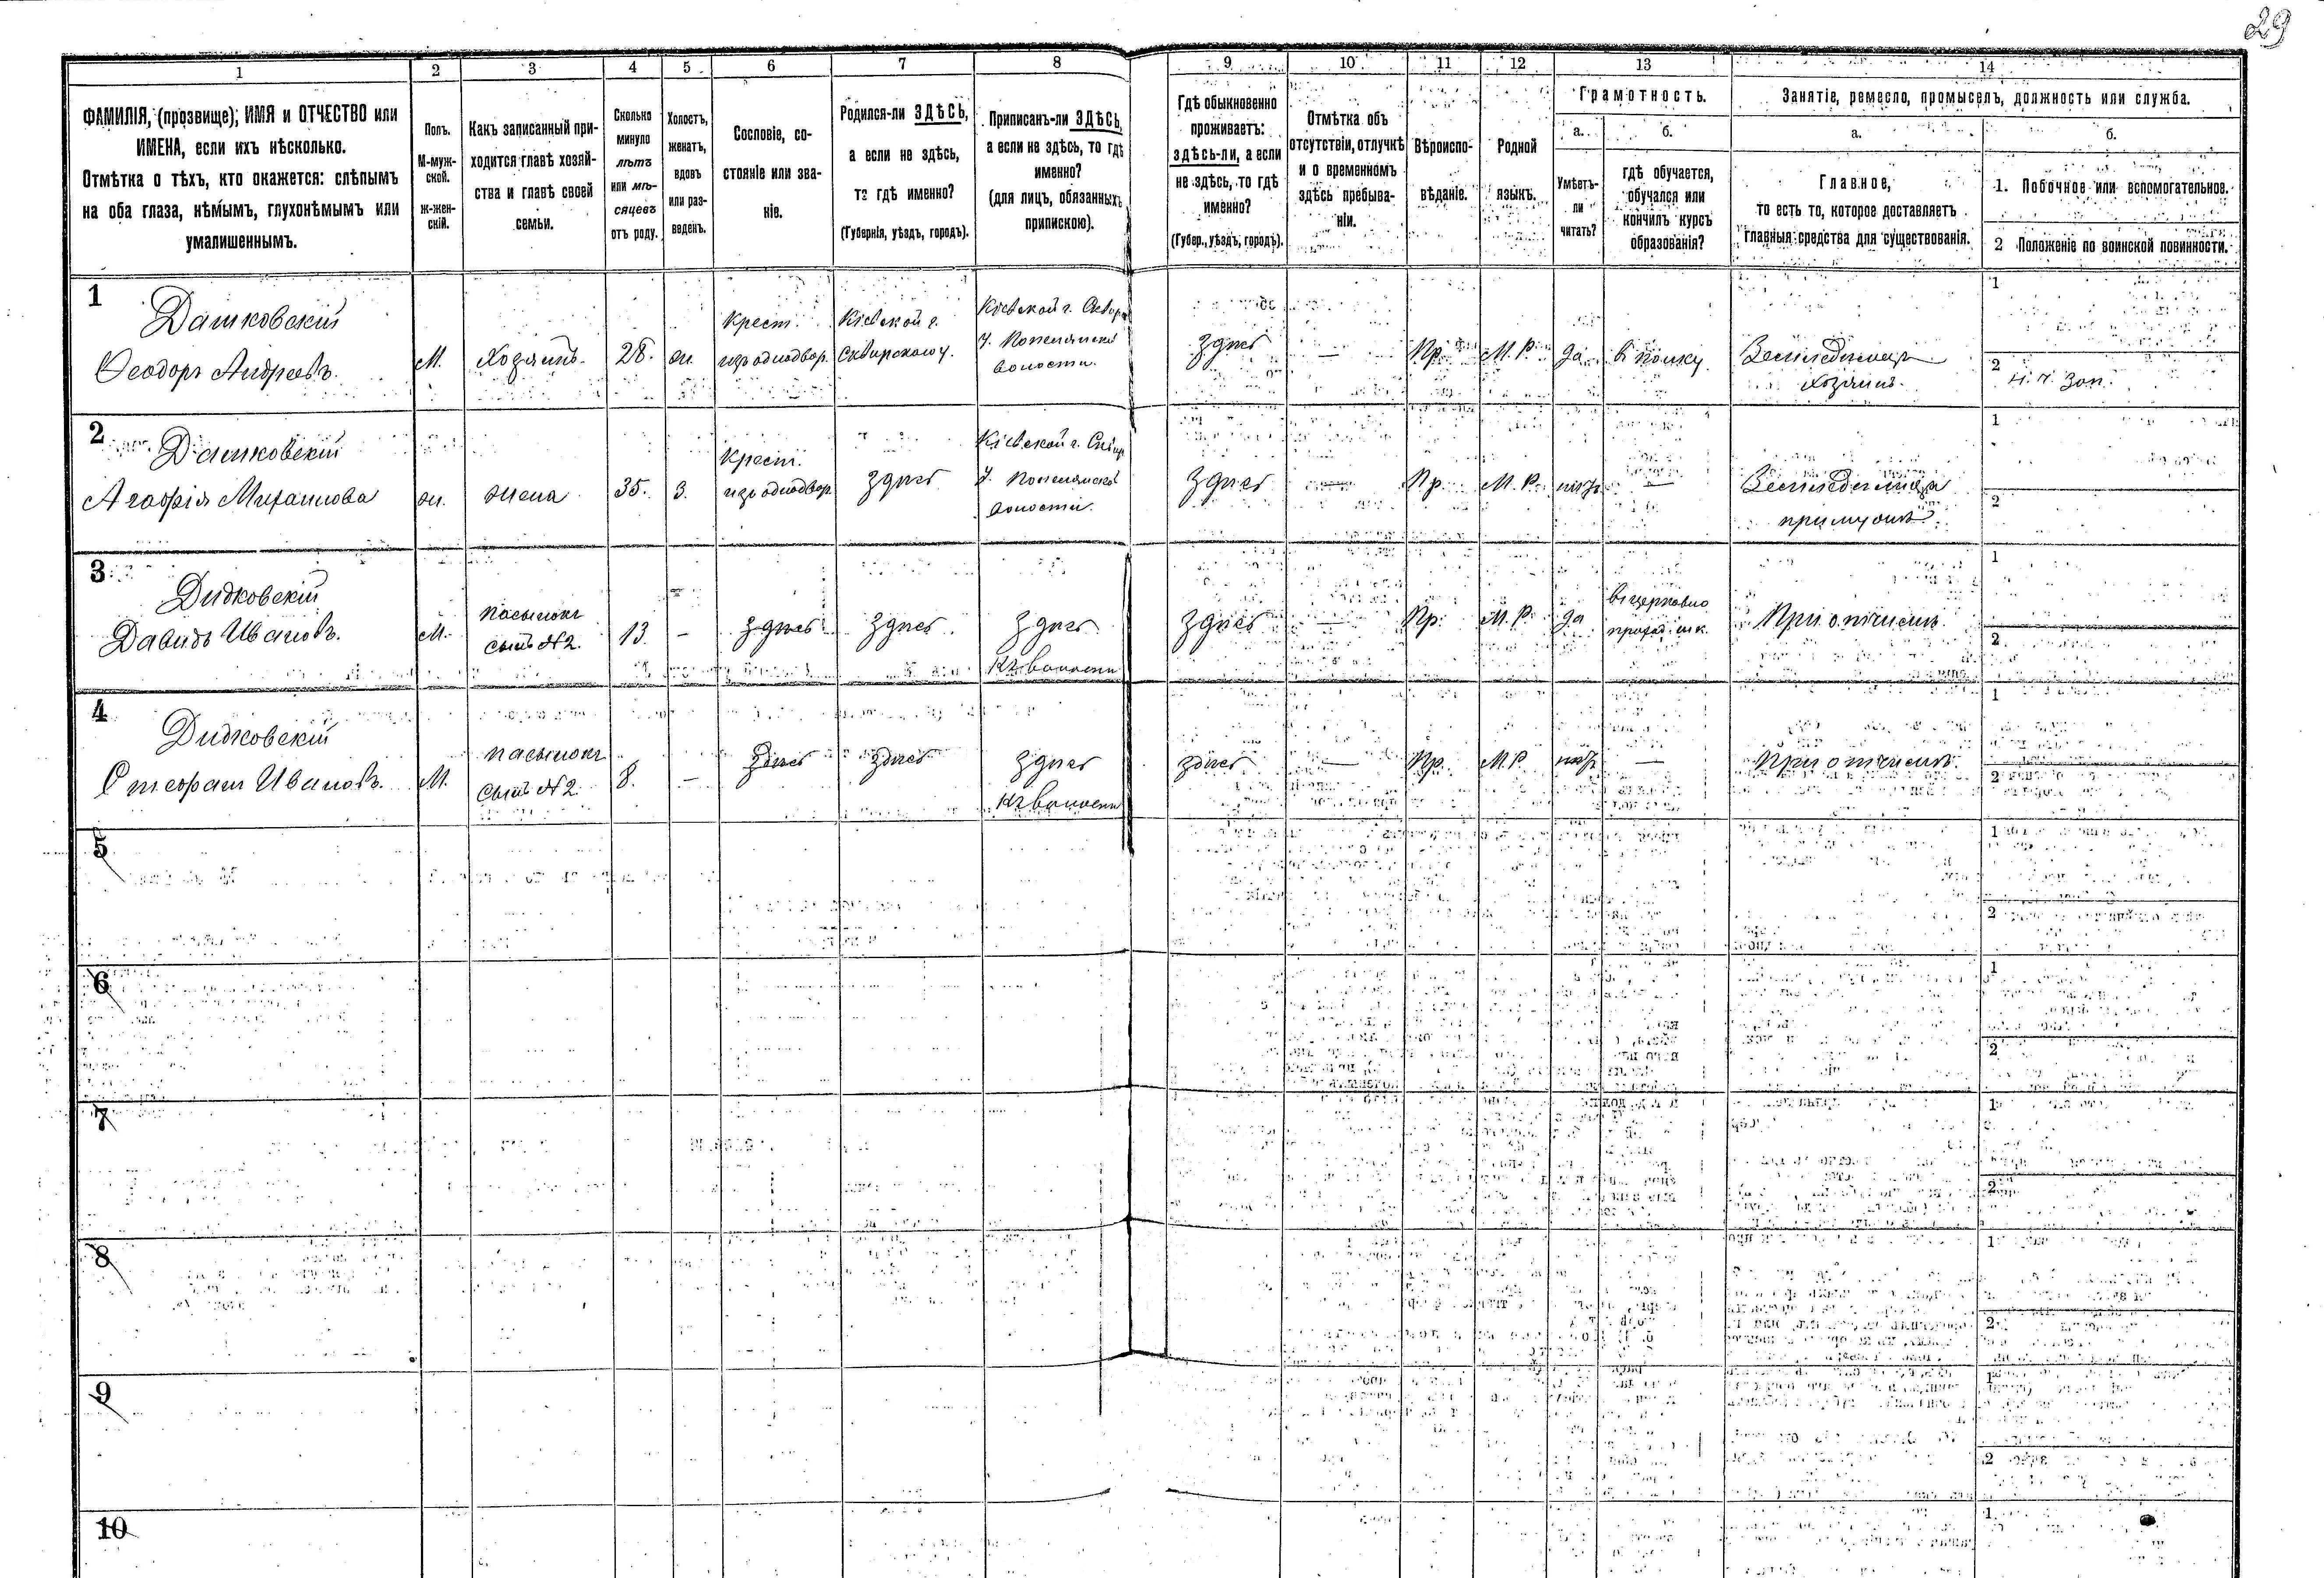 29
1 2 3 4 5 6 7 8 9 10 11 12 13 14
ФАМИЛІЯ, (прозвище), ИМЯ и ОТЧЕСТВО или
ИМЕНА, если ихъ нѣсколько.
Отмѣтка о тѣхъ, кто окажется: слѣпымъ
на оба глаза, нѣмымъ, глухонѣмымъ или
умалишеннымъ.
Полъ.
М-муж-
ской.
ж-жен-
скій.
Какъ записанный при-
ходится главѣ хозяй-
ства и главѣ своей
семьи.
Сколько
минуло
лѣтъ
или мѣ-
сяцевъ
отъ роду.
Холостъ,
женатъ,
вдовъ
или раз-
веденъ.
Сословіе, со-
стояніе или зва-
ніе.
Родился-ли ЗДѢСЬ,
а если не здѣсь,
то гдѣ именно?
(Губернія, уѣздъ, городъ).
Приписанъ-ли ЗДѢСЬ,
а если не здѣсь, то гдѣ
именно?
(для лицъ, обязанныхъ
припискою).
Гдѣ обыкновенно
проживаетъ:
здѣсь-ли, а если
не здѣсь, то гдѣ
именно?
(Губер., уѣздъ, городъ).
Отмѣтка объ
отсутствіи, отлучкѣ
и о временномъ
здѣсь пребыва-
ніи.
Вѣроиспо-
вѣданіе.
Родной
языкъ.
Грамотность.
а.
Умѣетъ-
ли
читать?
б.
гдѣ обучается,
обучался или
кончилъ курсъ
образованія?
Занятіе, ремесло, промыселъ, должность или служба.
а.
Главное,
то есть то, которое доставляетъ
главныя средства для существованія.
б.
1. Побочное или вспомогательное.
2 Положеніе по воинской повинности.
1
Дашковскій
Ѳеодоръ Андреевъ.
М.
Хозяинъ.
28.
ж.
Крест.
изъ однодвор.
Кіевской г.
Сквирского у.
Кіевской г. Сквир
у.
волости.
здѣсь
—
Пр.
М. Р.
да
Хозяинъ.
1
2
2
Дашковскій
Агафія Михаилова
ж.
жена
35.
З.
Крест.
изъ однодвор.
здѣсь
Кіевской г. Сквир
у.
волости.
здѣсь
—
Пр.
М. Р.
нѣтъ
—
при мужѣ
1
2
3
Дидковскій
Давидъ Ивановъ.
М.
пасынокъ
сынъ №2.
13.
—
здѣсь
здѣсь
здѣсь
къ волости
здѣсь
—
Пр.
М. Р.
да
въ церковно
приход. шк.
При отчимѣ
1
2
4
Дидковскій
Стефанъ Ивановъ.
М.
пасынокъ
сынъ №2
8.
—
здѣсь
здѣсь
здѣсь
къ волости
здѣсь
—
Пр.
М. Р.
нѣтъ
—
При отчимѣ
1
2
5
1
2
6
1
2
7
1
2
8
1
2
9
1
2
10
1